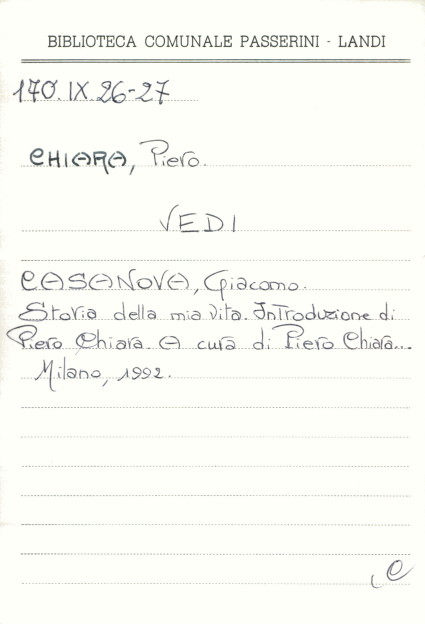 BIBLIOTECA COMUNALE PASSERINI - LANDI
170.IX.26-27
CHIARA, Piero.
VEDI
CASANOVA, Giacomo.
Storia della mia vita. Introduzione di
Piero Chiara. A cura di Piero Chiara...
Milano, 1992.